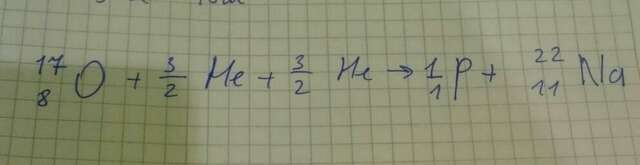 ¹⁷₈O + ³₂He + ³₂He → ¹₁p + ²²₁₁Na